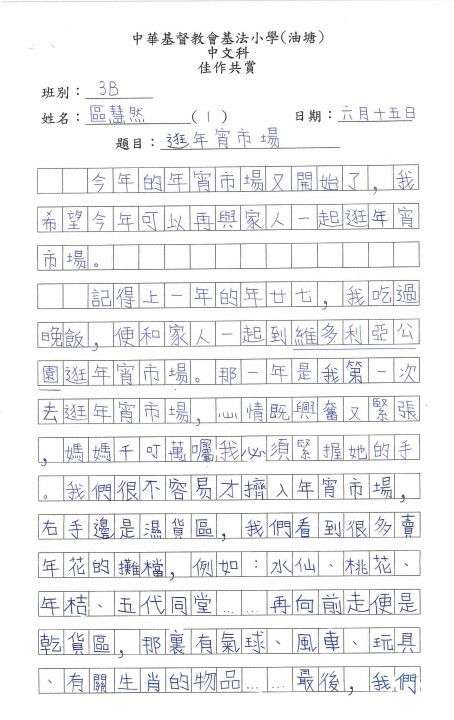 中華基督教會基法小學(油塘)
中文科
佳作共賞
班別：3B
姓名：區慧然（1） 日期：六月十五日
題目：逛年宵市場
今年的年宵市場又開始了，我
希望今年可以再與家人一起逛年宵
市場。
記得上一年的年廿七，我吃過
晚飯，便和家人一起到維多利亞公
園逛年宵市場。那一年是我第一次
去逛年宵市場，心情既興奮又緊張
，媽媽千叮萬囑我必須緊握她的手
。我們很不容易才擠入年宵市場，
右手邊是濕貨區，我們看到很多賣
年花的攤檔，例如：水仙、桃花、
年桔、五代同堂……再向前走便是
乾貨區，那裏有氣球、風車、玩具
、有關生肖的物品……最後，我們